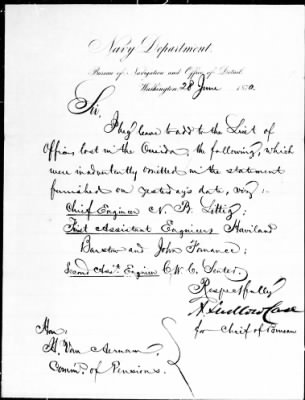 Navy Department,
Bureau of Navigation and Office of Detail
Washington, 28 June 1870.
Sir,
I beg leave to add to the List of
Officers lost in the Oneida, the following, which
were inadvertently omitted in the statement
furnished on yesterday's date, viz:
Chief Engineer N. B. Littig;
First Assistant Engineers Haviland
Barstow and John Fornance;
Second Asst. Engineer C. W. C. Senter.
Respectfully
A. Ludlow Case
for Chief of Bureau
Hon:
H. Van Aernam,
Commr. of Pensions.